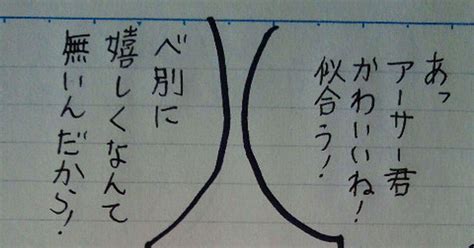 あっ
アーサー君
かわいいね!
似合う!
べ別に
嬉しくなんて
無いんだから!